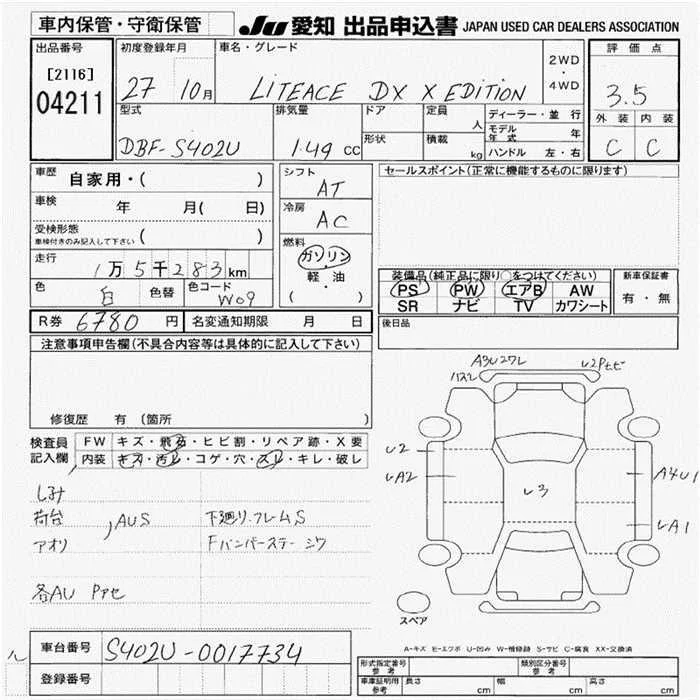 車内保管・守衛保管
JU 愛知 出品申込書 JAPAN USED CAR DEALERS ASSOCIATION
出品番号
[2116]
04211
初度登録年月
27 10月
車名・グレード
LITEACE DX X EDITION
2WD
・
4WD
評価点
3.5
外装 内装
C C
型式
DBF-S402U
排気量
1.49 cc
ドア
形状
定員 人
積載 kg
ディーラー・並行
モデル年式 年
ハンドル 左・右
車歴 自家用・( )
車検 年 月( 日)
受検形態
車検付きのみ記入して下さい ( )
走行 1万5千283km
色 白 色替 色コード W09
シフト
AT
冷房
AC
燃料
ガソリン
・
軽・油
( )
セールスポイント(正常に機能するものに限ります)
装備品(純正品に限り○をつけてください)
PS PW エアB AW
SR ナビ TV カワシート
新車保証書
有・無
後日品
R券 6780 円 名変通知期限 月 日
注意事項申告欄(不具合内容等は具体的に記入して下さい)
修復歴 有 (箇所 )
検査員
記入欄
FW キズ・飛石・ヒビ割・リペア跡・X要
内装 キズ・汚レ・コゲ・穴・スレ・キレ・破レ
しみ
荷台
アオリ
AUS
下廻り.フレームS
Fバンパーステー シワ
各AU Pァセ
A3U2ワレ
ハズレ
U2Pセビ
U2
UA2
U3
A4U1
UA1
スペア
A-キズ E-エクボ U-凹み W-補修跡 S-サビ C-腐食 XX-交換済
車台番号 S402U-0017734
登録番号
形式指定番号
参考
類別区分番号
参考
車庫証明用
参考
長さ cm 幅 cm 高さ cm